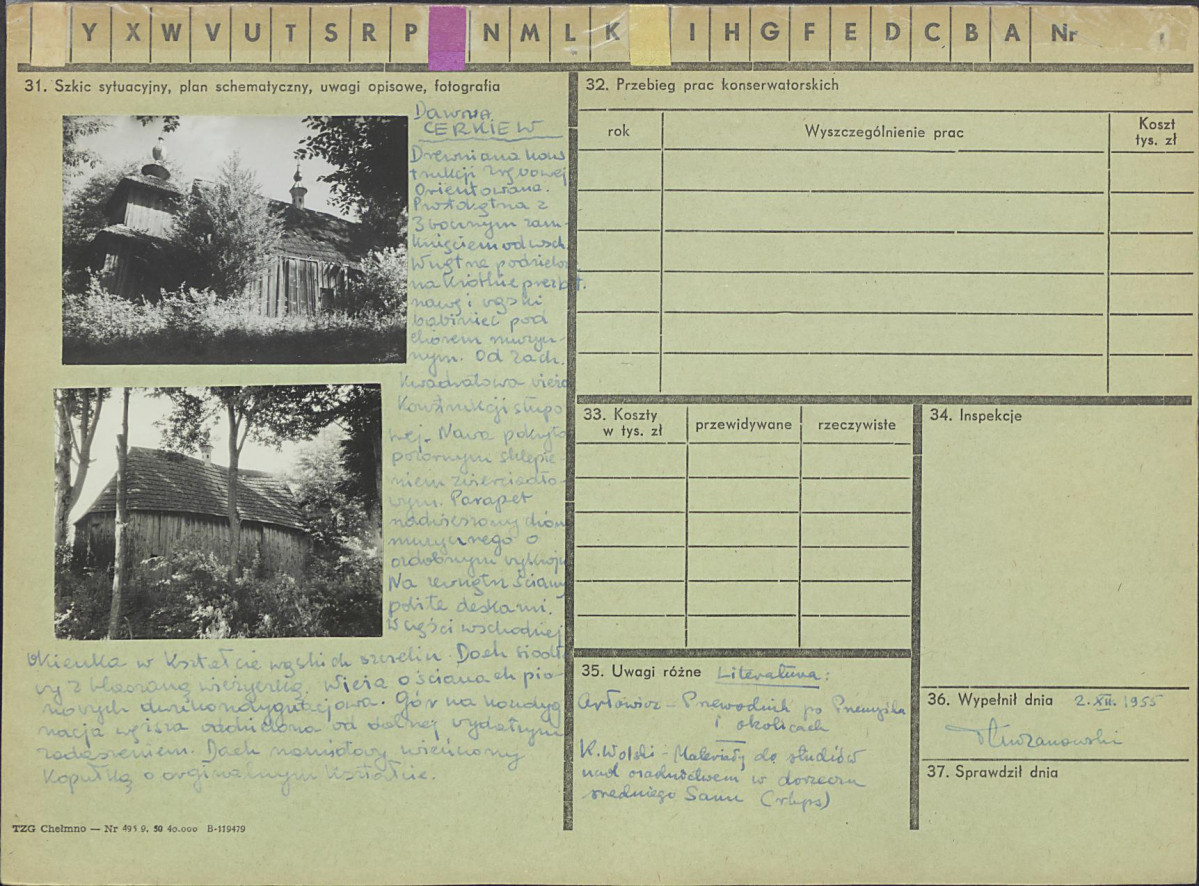 Y X W V U T S R P N M L K I H G F E D C B A Nr
31. Szkic sytuacyjny, plan schematyczny, uwagi opisowe, fotografia
Dawna
CERKIEW
Drewniana kons
trukcji zrębowej
Orientowana.
Prostokątna z
3 bocznym zam-
knięciem od wsch.
Wnętrze podzielo
na krótkie prezbit.
nawę i wąski
babiniec pod
chórem muzycz-
nym. Od zach.
kwadratowa wieża
konstrukcji słupo
wej. Nawa pokryta
pozornym sklepie-
niem zwierciadło-
wym. Parapet
nadwieszony chóru
muzycznego o
ozdobnym wykroju
Na zewnątrz ściany
pobite deskami.
W części wschodniej
okienka w kształcie wąskich szczelin. Dach siodło
wy z blaszaną wieżyczką. Wieża o ścianach pio-
nowych dwukondygnacjowa. Górna kondyg
nacja węższa oddzielona od dolnej wydatnym
zadaszeniem. Dach namiotowy wieńczony
kopułką o orginalnym kształcie.
TZG Chełmno — Nr 495 9. 50 40.000 B-119479
32. Przebieg prac konserwatorskich
rok
Wyszczególnienie prac
Koszt
tys. zł
33. Koszty
w tys. zł
przewidywane
rzeczywiste
34. Inspekcje
35. Uwagi różne Literatura:
Orłowicz - Przewodnik po Przemyślu
i okolicach
K. Wolski - Materiały do studiów
nad osadnictwem w dorzeczu
średniego Sanu (rkps)
36. Wypełnił dnia 2.XII.1955
37. Sprawdził dnia